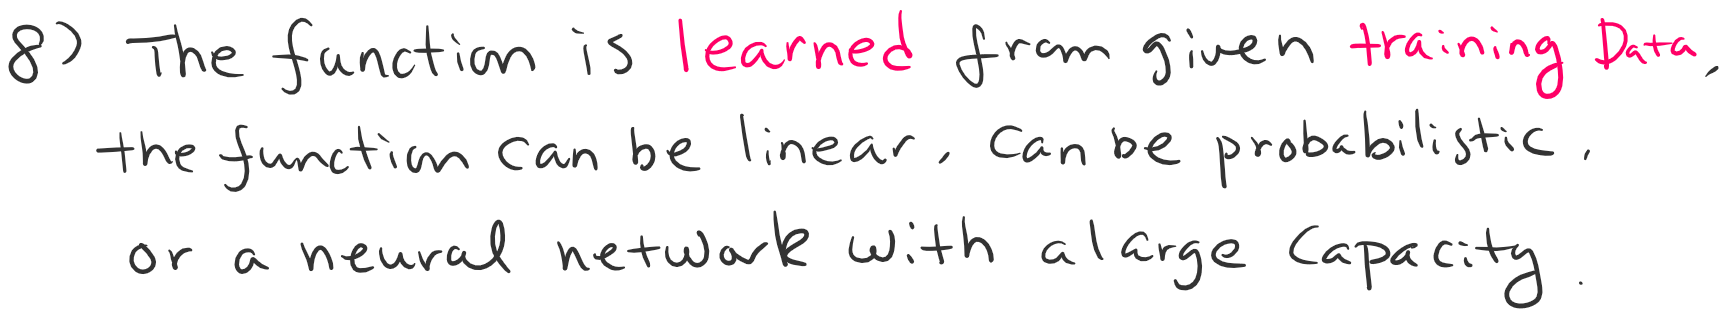 8) The function is learned from given training Data,
the function can be linear, can be probabilistic,
or a neural network with a large capacity.